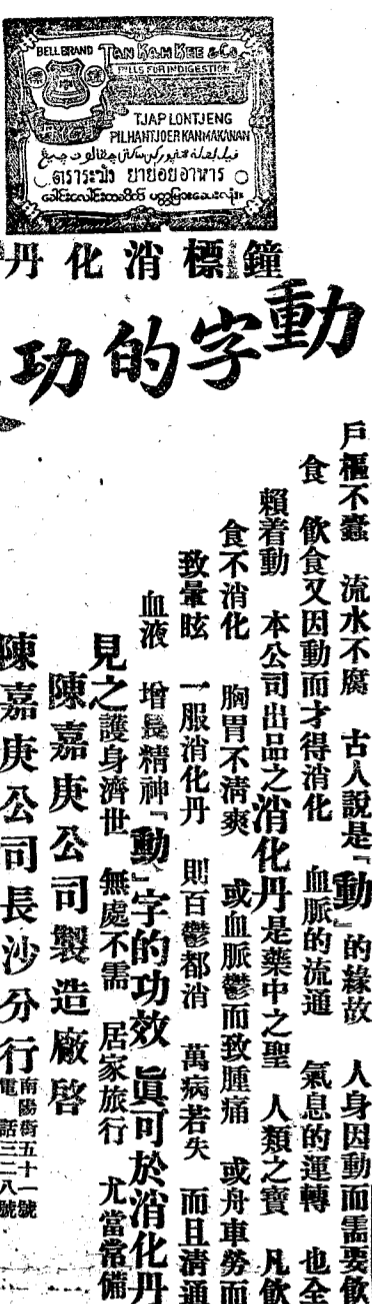 BELL BRAND
TAN KAH KEE & Co
PILLS FOR INDIGESTION
TJAP LONTJENG
PIL HANTJOER KAN MAKANAN
ตราระฆัง ยาย่อยอาหาร
鐘標消化丹
動字的功
戶樞不蠹 流水不腐 古人說是『動』的緣故 人身因動而需要飲
食 飲食又因動而才得消化 血脈的流通 氣息的運轉 也全
賴着動 本公司出品之消化丹是藥中之聖 人類之寶 凡飲
食不消化 胸胃不清爽 或血脈鬱而致腫痛 或舟車勞而
致暈眩 一服消化丹 則百鬱都消 萬病若失 而且清通
血液 增長精神『動』字的功效 眞可於消化丹
見之護身濟世 無處不需 居家旅行 尤當常備
陳嘉庚公司製造廠啓
陳嘉庚公司長沙分行
南陽街五十一號
電話三二八號